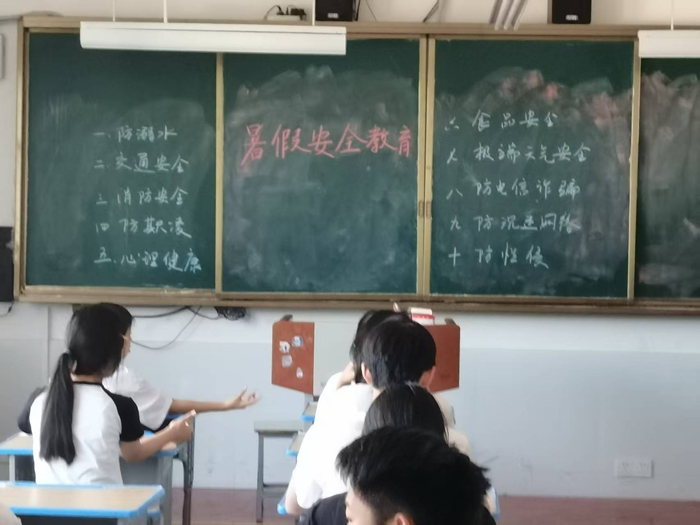 一.防溺水
二.交通安全
三.消防安全
四 防欺凌
五.心理健康
暑假安全教育
六 食品安全
七 极端天气安全
八 防电信诈骗
九 防沉迷网络
十 防性侵